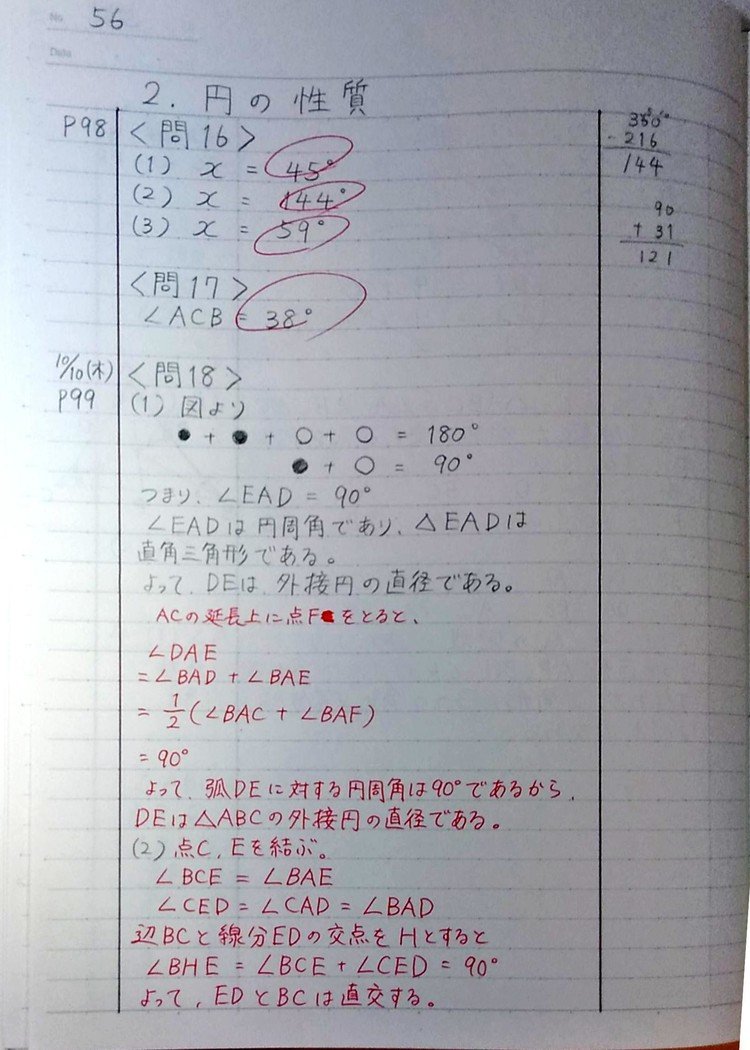 No. 56
Date
2. 円の性質
P98 <問16>
(1) x = 45°
(2) x = 144°
(3) x = 59°
<問17>
∠ACB = 38°
10/10(木) <問18>
P99 (1) 図より
● + ● + ○ + ○ = 180°
● + ○ = 90°
つまり、∠EAD = 90°
∠EADは円周角であり、△EADは
直角三角形である。
よって、DEは、外接円の直径である。
ACの延長上に点Fをとると、
∠DAE
=∠BAD + ∠BAE
= 1/2 (∠BAC + ∠BAF)
= 90°
よって、弧DEに対する円周角は90°であるから、
DEは△ABCの外接円の直径である。
(2) 点C, Eを結ぶ。
∠BCE = ∠BAE
∠CED = ∠CAD = ∠BAD
辺BCと線分EDの交点をHとすると
∠BHE = ∠BCE + ∠CED = 90°
よって, EDとBCは直交する。
- 216
144
90
+ 31
121